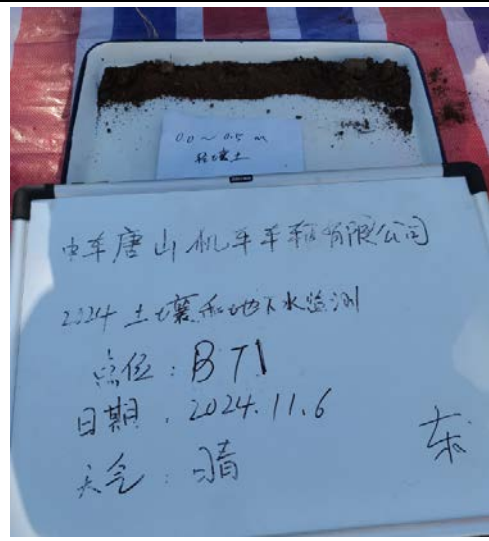 0.0~0.5m
轻壤土
中车唐山机车车辆有限公司
2024 土壤和地下水监测
点位:BT1
日期:2024.11.6
天气:晴
东